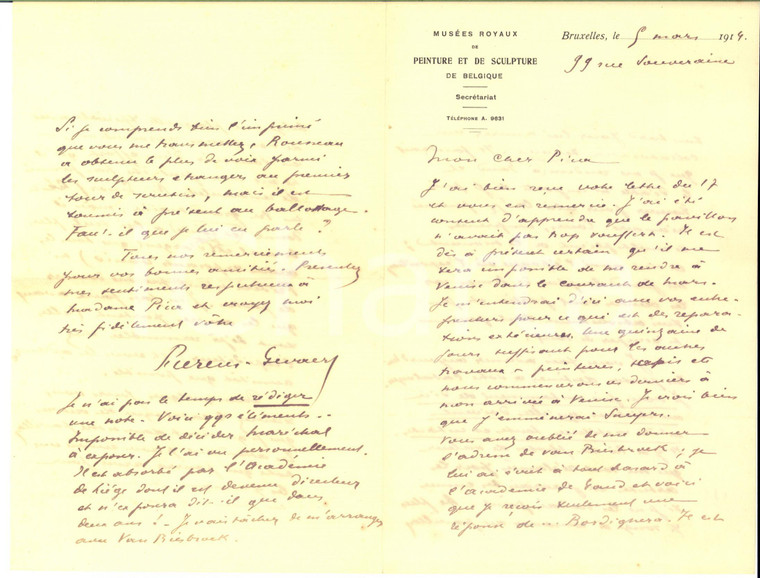 MUSÉES ROYAUX
DE
PEINTURE ET DE SCULPTURE
DE BELGIQUE
Secrétariat
TÉLÉPHONE A. 9631
Bruxelles, le 5 mars 1914.
99 rue Souveraine
Mon cher Pica
J'ai bien reçu votre lettre du 17
et vous en remercie. J'ai été
content d'apprendre que le pavillon
n'avait pas trop souffert. Il est
dès à présent certain qu'il me
sera impossible de me rendre à
Venise dans le courant de mars.
Je m'entendrai d'ici avec vos entre-
preneurs pour ce qui est des répara-
tions extérieures. Une quinzaine de
jours suffisant pour les autres
travaux - peintures, tapis etc
nous commencerons ces derniers à
mon arrivée à Venise. Je crois bien
que j'emmènerai
Vous avez oublié de me donner
l'adresse de Van Biesbroeck ; je
lui ai écrit à tout hasard à
l'académie de Gand et voici
que je reçois seulement une
réponse de Bordighera. Il est
Si je comprends bien l'imprimé
que vous me transmettez, Rousseau
a obtenu le plus de voix parmi
les sculpteurs étrangers au premier
tour de scrutin, mais il est
soumis à présent au ballottage.
Faut-il que je lui en parle ?
Tous nos remerciements
pour vos bonnes amitiés. Présentez
mes sentiments respectueux à
madame Pica et croyez moi
très fidèlement vôtre
Fierens-Gevaert
Je n'ai pas le temps de rédiger
une note. Voici qqs éléments.
Impossible de décider Maréchal
à exposer. Je l'ai vu personnellement.
Il est absorbé par l'Académie
de Liége dont il est devenu directeur
et n'exposera dit-il que dans
deux ans ! - Je vais tâcher de m'arranger
avec Van Biesbroeck.